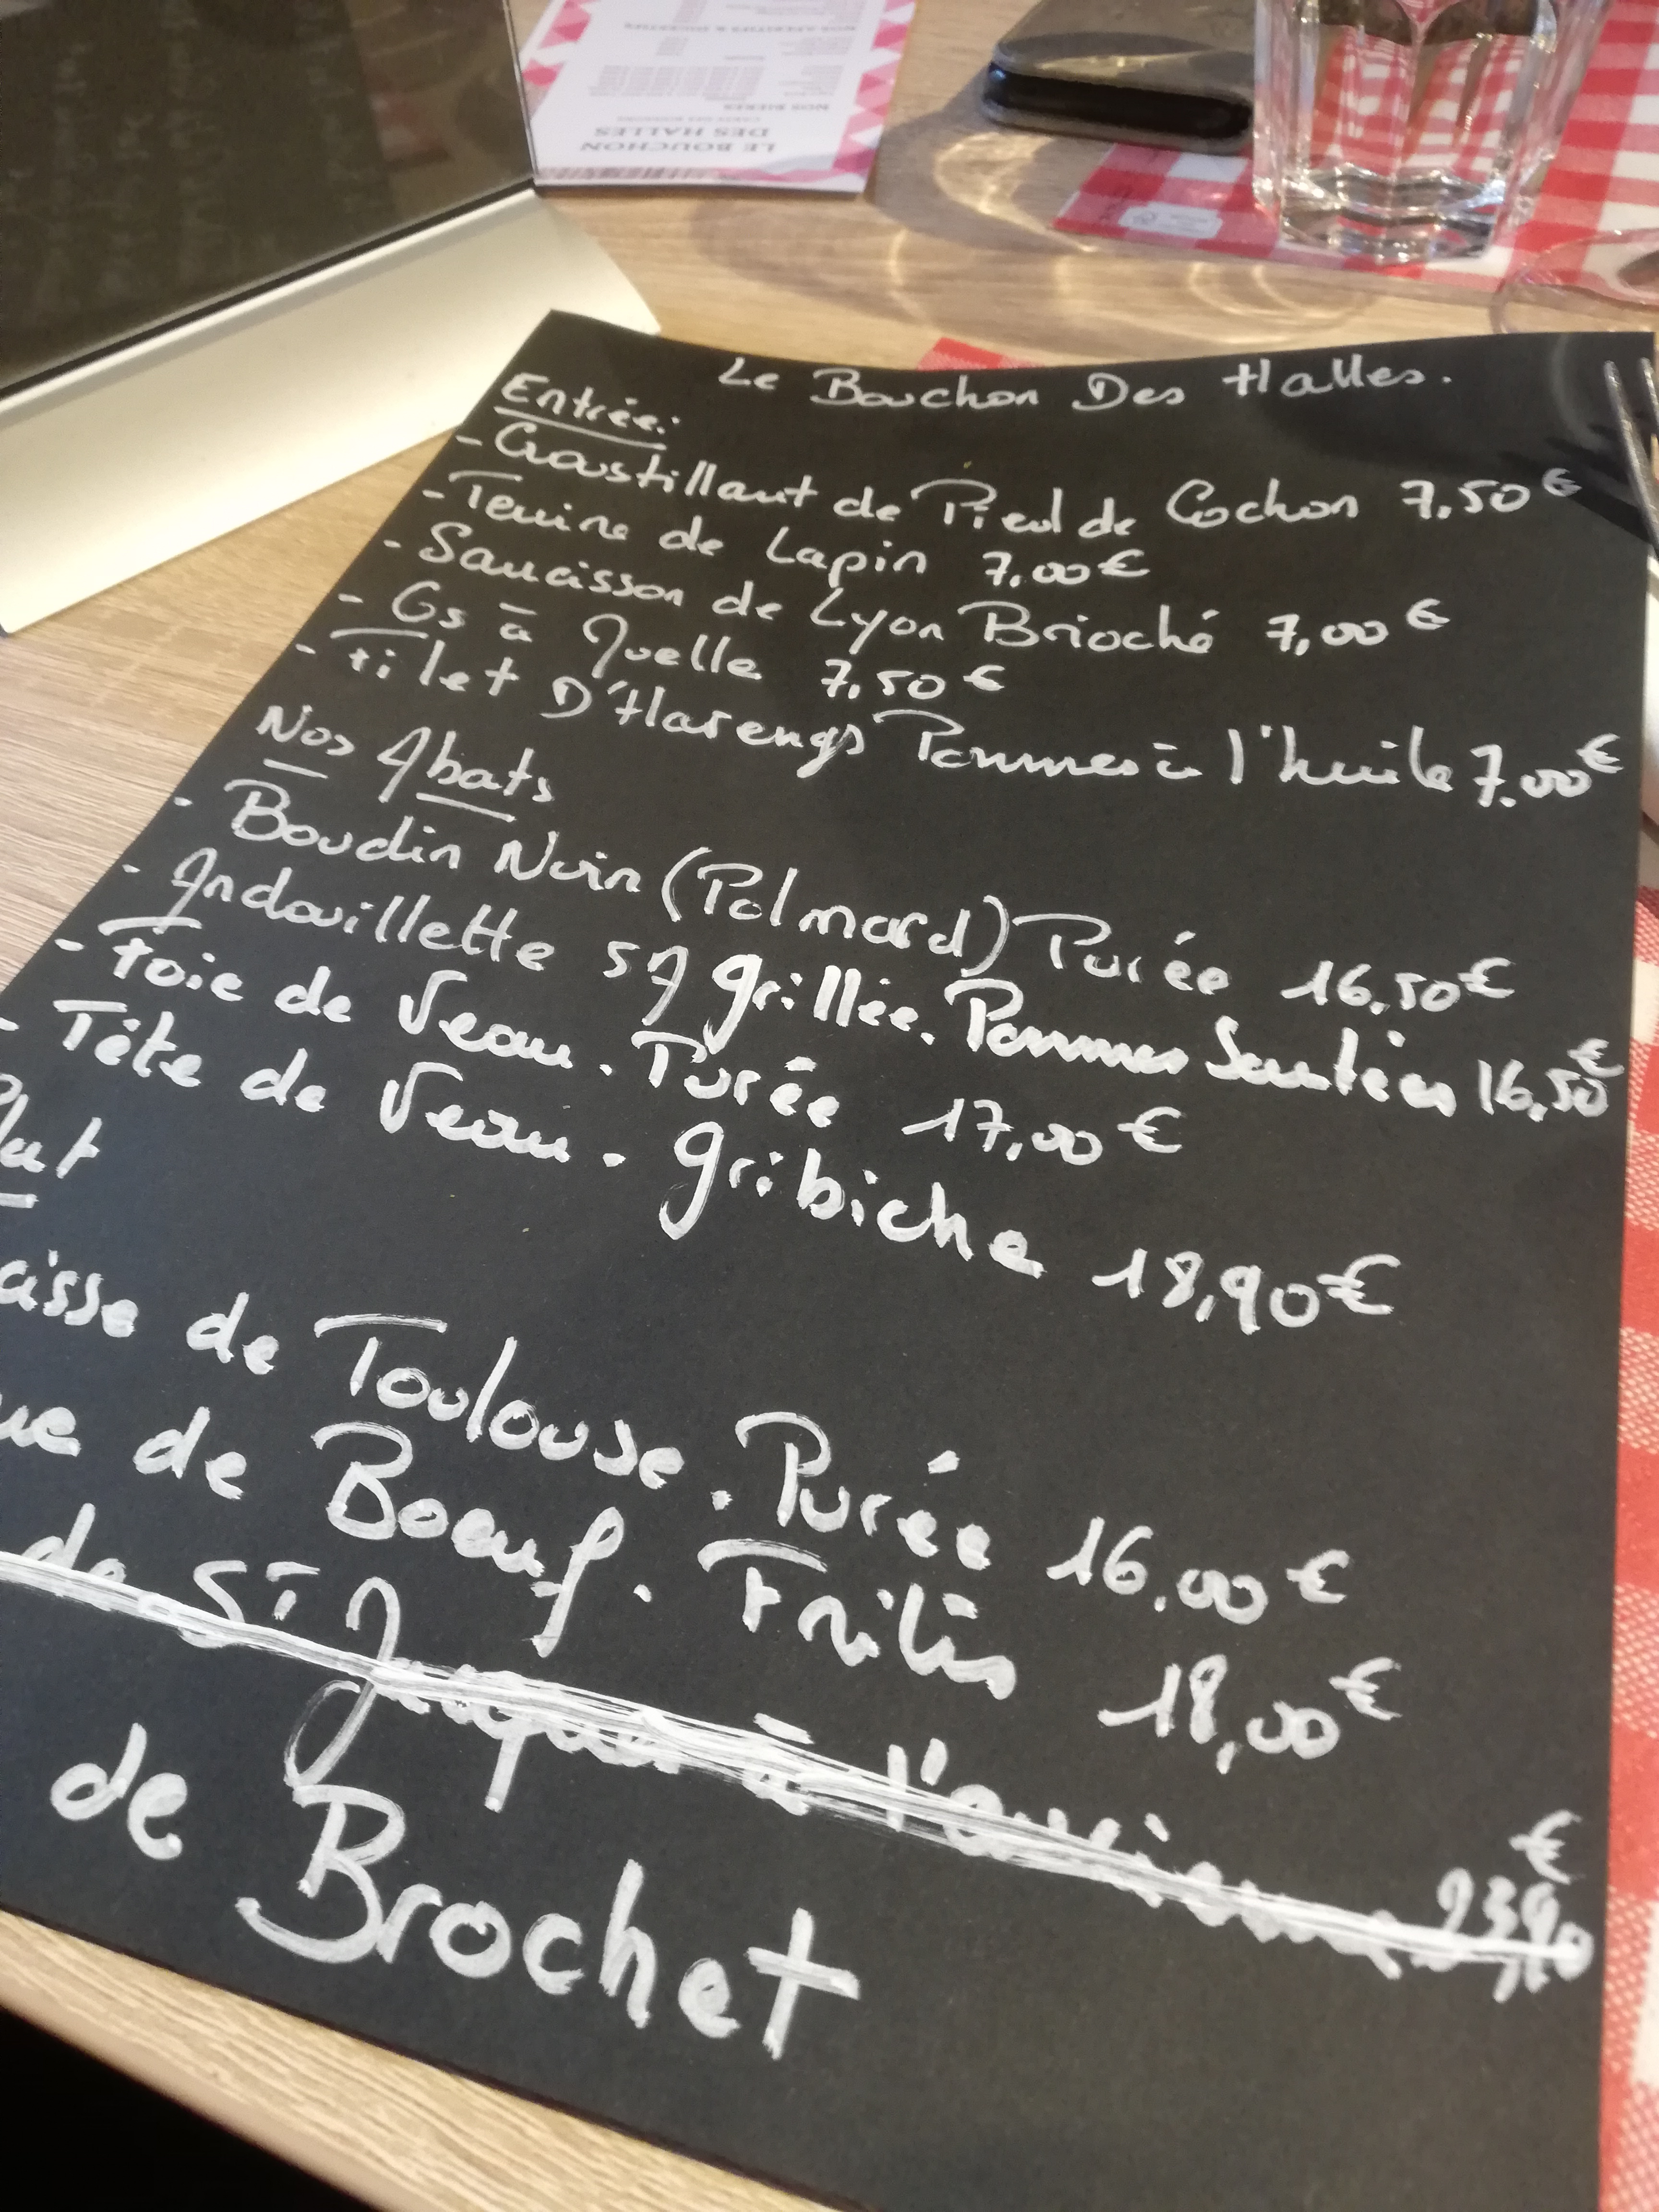 LE BOUCHON
DES HALLES
NOS BIÈRES
Le Bouchon Des Halles.
Entrée:
- Croustillant de Pied de Cochon 7,50€
- Terrine de Lapin 7.00€
- Saucisson de Lyon Brioché 7,00€
- Os à Quelle 7,50€
- Filet D'Harengs Pommes à l'huile 7.00€
Nos Abats
- Boudin Noir (Polmard) Purée 16,50€
- Andouillette 5A grillée. Pommes Sautées 16,50€
- Foie de Veau. Purée 17,00€
- Tête de Veau. Gribiche 18,90€
Plat
cisse de Toulouse. Purée 16.00€
ue de Boeuf. Frites 18,00€
de St Jacques à l'ancienne 23,90€
de Brochet